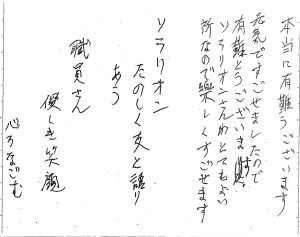 本当に有難うございます
元気ですごせましたので
有難とうございます
ソラリオンさんわとてもよい
所なので楽しくすごせます
ソラリオン
たのしく友と語り
あう
職員さん
優しき笑顔
心なごむ